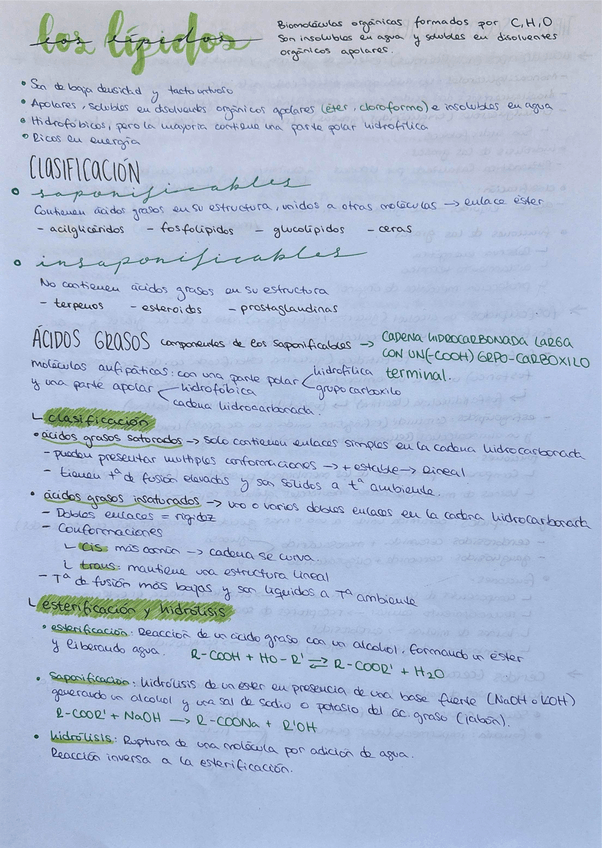 los lípidos
Biomoléculas orgánicas formados por C, H, O
Son insolubles en agua y solubles en disolventes
orgánicos apolares.
• Son de baja densidad y tacto untuoso
• Apolares, solubles en disolventes orgánicos apolares (éter, cloroformo) e insolubles en agua
• Hidrofóbicos, pero la mayoría contiene una parte polar hidrofílica
• Ricos en energía
CLASIFICACIÓN
saponificables
Contienen ácidos grasos en su estructura, unidos a otras moléculas → enlace éster
- acilglicéridos - fosfolípidos - glucolípidos - ceras
insaponificables
No contienen ácidos grasos en su estructura
- terpenos - esteroides - prostaglandinas
ÁCIDOS GRASOS componentes de los saponificables → CADENA HIDROCARBONADA LARGA
CON UN (-COOH) GRPO-CARBOXILO
terminal.
moléculas anfipáticas: con una parte polar < hidrofílica
grupo carboxilo
y una parte apolar < hidrofóbica
cadena hidrocarbonada.
clasificación
• ácidos grasos saturados → Solo contienen enlaces simples en la cadena hidrocarbonada
- pueden presentar multiples conformaciones → + estable → lineal
- tienen tª de fusión elevados y son sólidos a tª ambiente.
• ácidos grasos insaturados → uno o varios dobles enlaces en la cadena hidrocarbonada
- Dobles enlaces = rigidez
- Conformaciones
cis: más común → cadena se curva.
trans: mantiene una estructura lineal
- Tª de fusión más bajas y son líquidos a Tª ambiente
esterificación y hidrólisis
• esterificación: Reacción de un ácido graso con un alcohol, formando un éster
y liberando agua. R-COOH + HO-R' ⇄ R-COOR' + H₂O
• Saponificación: hidrólisis de un éster en presencia de una base fuerte (NaOH o KOH)
generando un alcohol y una sal de sodio o potasio del ác. graso (jabón).
R-COOR' + NaOH → R-COONa + R'OH
• hidrólisis: Ruptura de una molécula por adición de agua.
Reacción inversa a la esterificación.